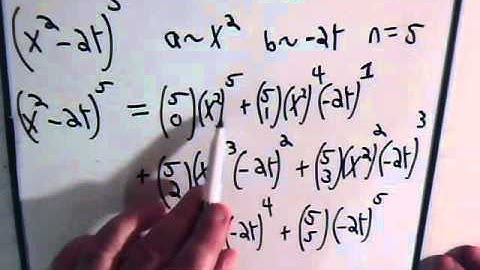 (x²-2t)⁵ a~x² b~-2t n=5
(x²-2t)⁵ = (5 0)(x²)⁵ + (5 1)(x²)⁴(-2t)¹
+ (5 2)(x ³(-2t)² + (5 3)(x²)²(-2t)³
-2t)⁴ + (5 5)(-2t)⁵